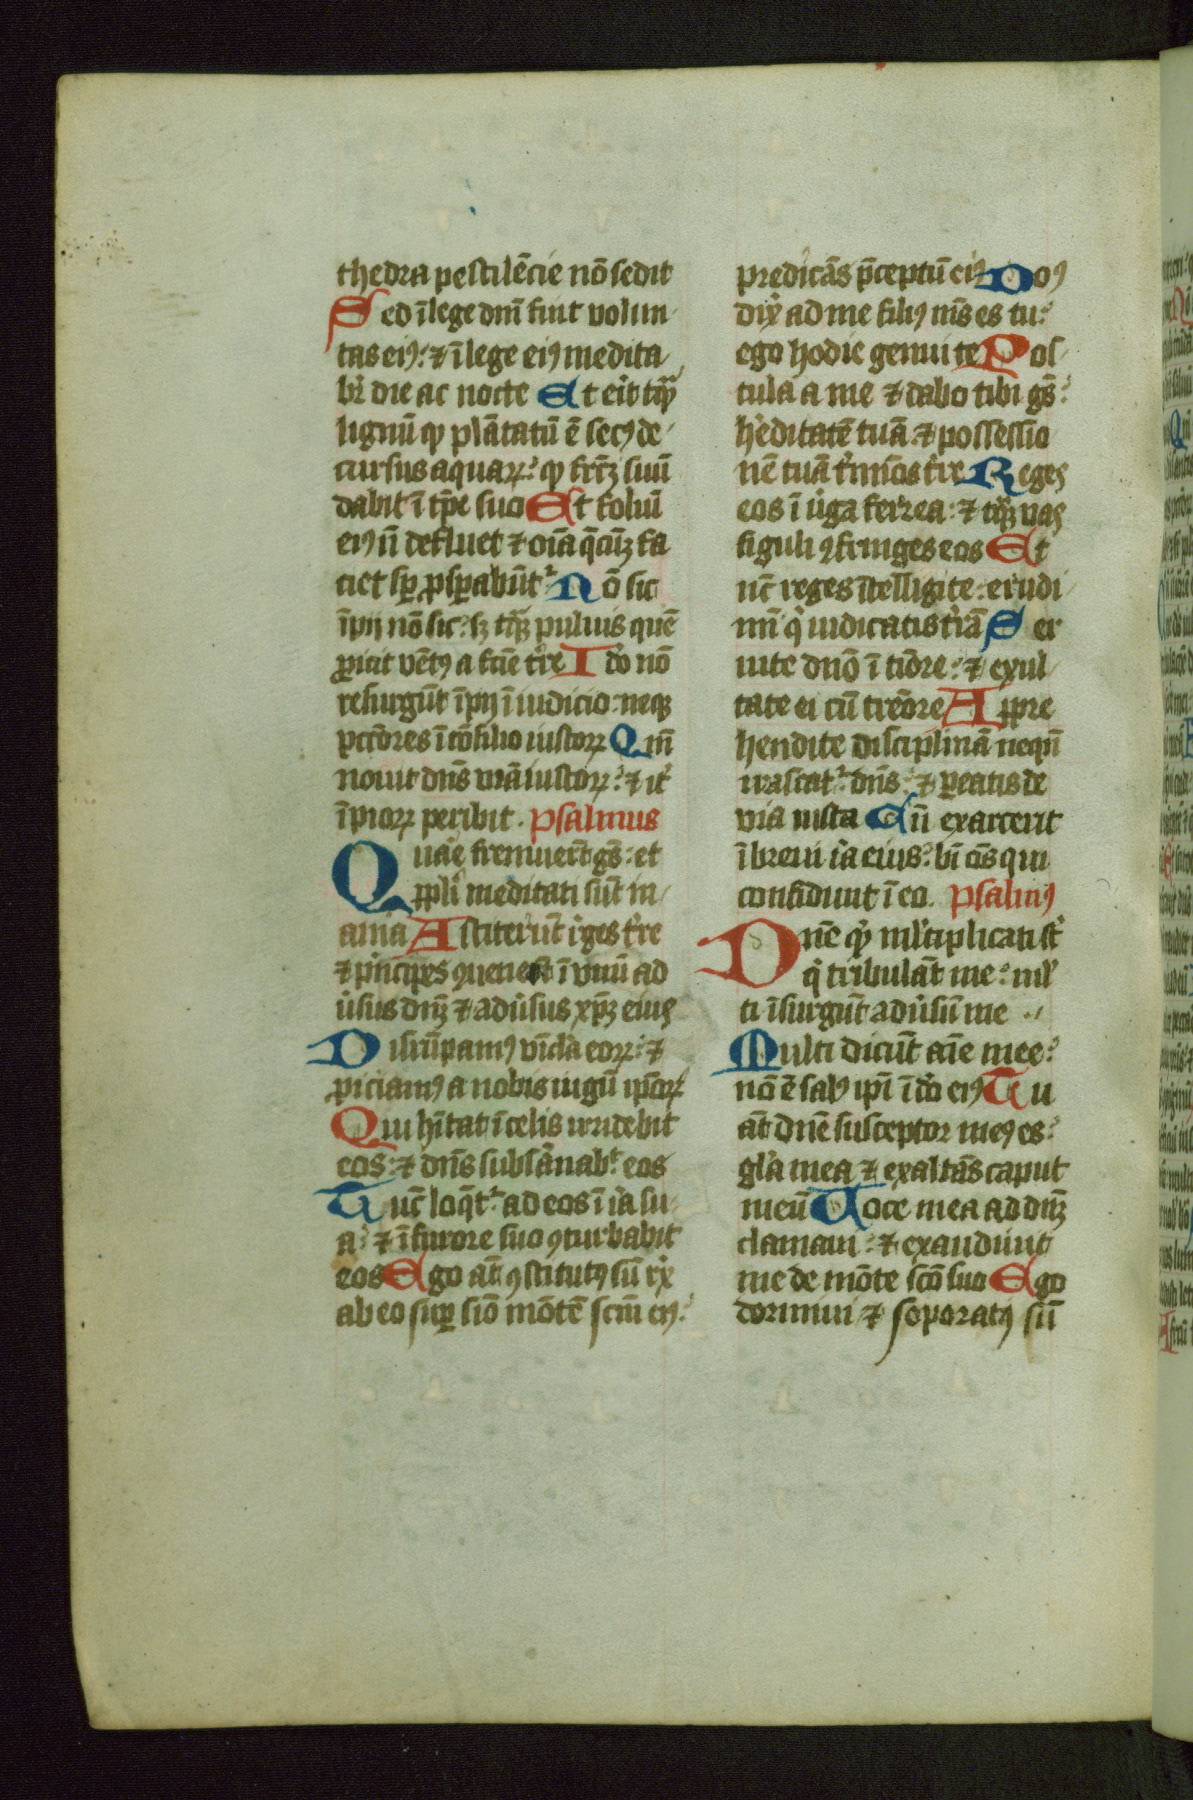 thedra pestilēcie nō sedit
Sed ī lege dnī fuit volun
tas eiꝰ: ⁊ ī lege eiꝰ medita
bit̉ die ac nocte Et erit tāqꝫ
lignū qd̛ plātatū ē secꝰ de
cursus aquarꝝ: qd̛ fructū suū
dabit ī tꝑe suo Et foliū
eiꝰ nō defluet ⁊ oīa q̄cūqꝫ fa
ciet sꝑ ꝓsꝑabūt̉ Nō sic
īpij nō sic: sꝫ tāqꝫ puluis quē
ꝓicit vētꝰ a facie tr̄e Ido nō
resurgūt īpij ī iudicio: neqꝫ
pctōres ī cōsilio iustorꝝ Qm̄
nouit dn̄s viā iustorꝝ: ⁊ it̉
īpiorꝝ peribit. Psalmus
Quare fremuerūt gētes: et
ppl̄i meditati sūt in
ania Astiterūt reges tr̄e
⁊ principes ꝯuenerūt ī vnū ad
v̉sus dn̄ꝫ ⁊ adv̉sus xp̄ꝫ eius
Disrūpamꝰ vīcla eorꝝ: ⁊
ꝓiciamꝰ a nobis iugū ip̄orꝝ
Qui hītat ī celis irridebit
eos: ⁊ dn̄s subsānab̄t eos
Tūc loq̄t̉ ad eos ī ira su
a: ⁊ ī furore suo ꝯturbabit
eos Ego āt ꝯstitutꝰ sū rex
ab eo suꝑ siō mōtē scm̄ eiꝰ:
predicās p̄ceptū eiꝰ Dn̄s
dix̉ ad me filiꝰ mēs es tu:
ego hodie genui te Pos
tula a me ⁊ dabo tibi gētes
hereditatē tuā ⁊ possessio
nē tuā t̉minos tr̄e Reges
eos ī v̉ga ferrea: ⁊ tāqꝫ vas
figuli ꝯfringes eos Et
nūc reges ītelligite: erudi
minī qui iudicatis trā Ser
uite dn̄o ī timore: ⁊ exul
tate ei cū tremore Appre
hendite disciplinā nequā
irascat̉ dn̄s: ⁊ ꝑeatis de
via iusta Cū exarcerit
ī breui ira eius: bn̄ oēs qui
confidunt ī eo. Psalmꝰ
Dn̄e qd̛ ml̄tiplicati st̄
qui tribulāt me: ml̄
ti īsurgūt adv̉sū me
Multi dicūt aīe mee:
nō ē salꝰ ip̄i ī deo eiꝰ Tu
āt dn̄e susceptor meꝰ es:
glia mea ⁊ exaltās caput
meū Uoce mea ad dn̄ꝫ
clamaui: ⁊ exaudiuit
me de mōte scō suo Ego
dormiui ⁊ soporatꝰ sū